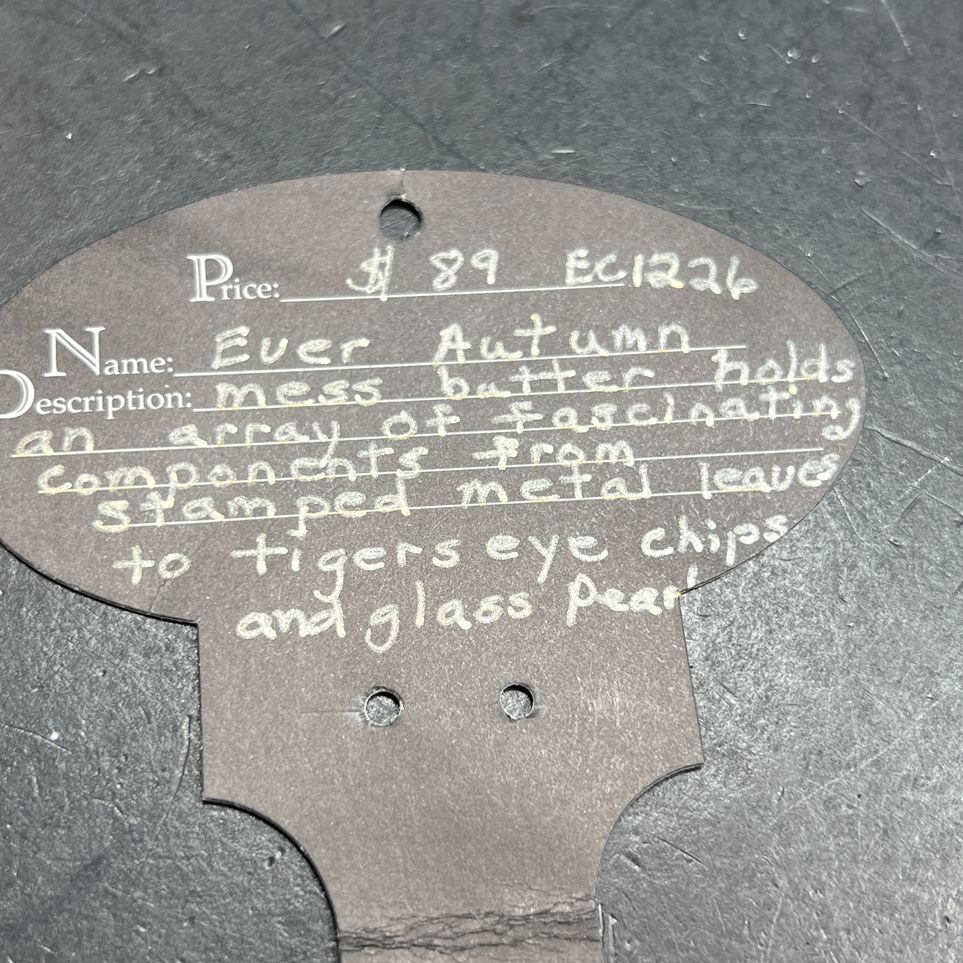 Price: $ 89 EC1226
Name: Ever Autumn
Description: mess batter holds
an array of fascinating
components from
stamped metal leaves
to tigers eye chips
and glass pearl